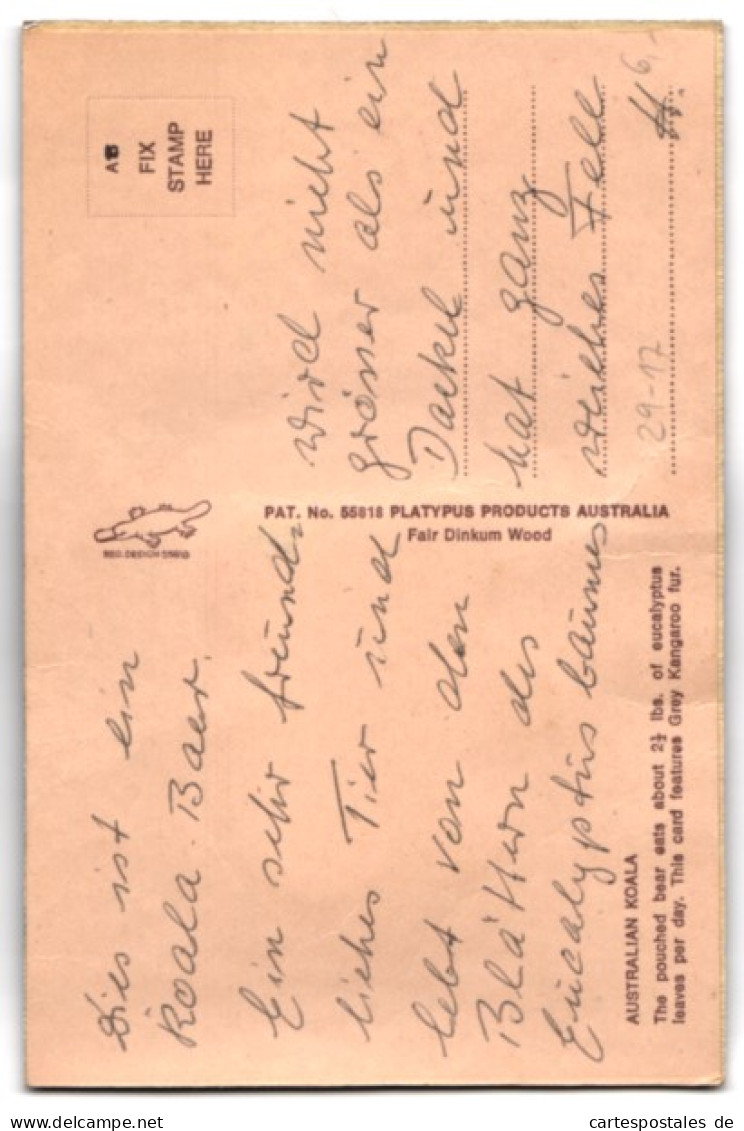 Dies ist ein
Koala. Baer.
Ein sehr freund-
liches Tier und
lebt von den
Blättern des
Eucalyptus baumes
AUSTRALIAN KOALA
The pouched bear eats about 2½ lbs. of eucalyptus
leaves per day. This card features Grey Kangaroo fur.
REG. DESIGN 55818
PAT. No. 55818 PLATYPUS PRODUCTS AUSTRALIA
Fair Dinkum Wood
FIX
STAMP
HERE
wird nicht
grösser als ein
Dackel und
hat ganz
weiches Fell
29-17
6,-
cartespostales de